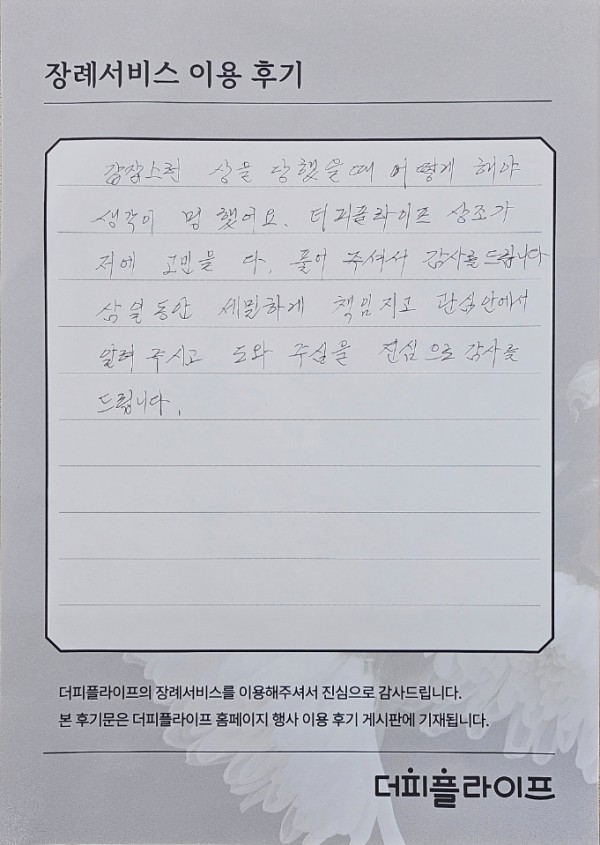 장례서비스 이용 후기
갑잡스런 상을 당했을때 어떻게 해야
생각이 멈 했어요. 더피플라이프 상조가
저에 고민을 다. 풀어 주셔서 감사를드립니다
삼일동안 세밀하게 책임지고 관심안에서
알려 주시고 도와 주심을 진심으로감사를
드립니다.
더피플라이프의 장례서비스를 이용해주셔서 진심으로 감사드립니다.
본 후기문은 더피플라이프 홈페이지 행사 이용 후기 게시판에 기재됩니다.
더피플라이프